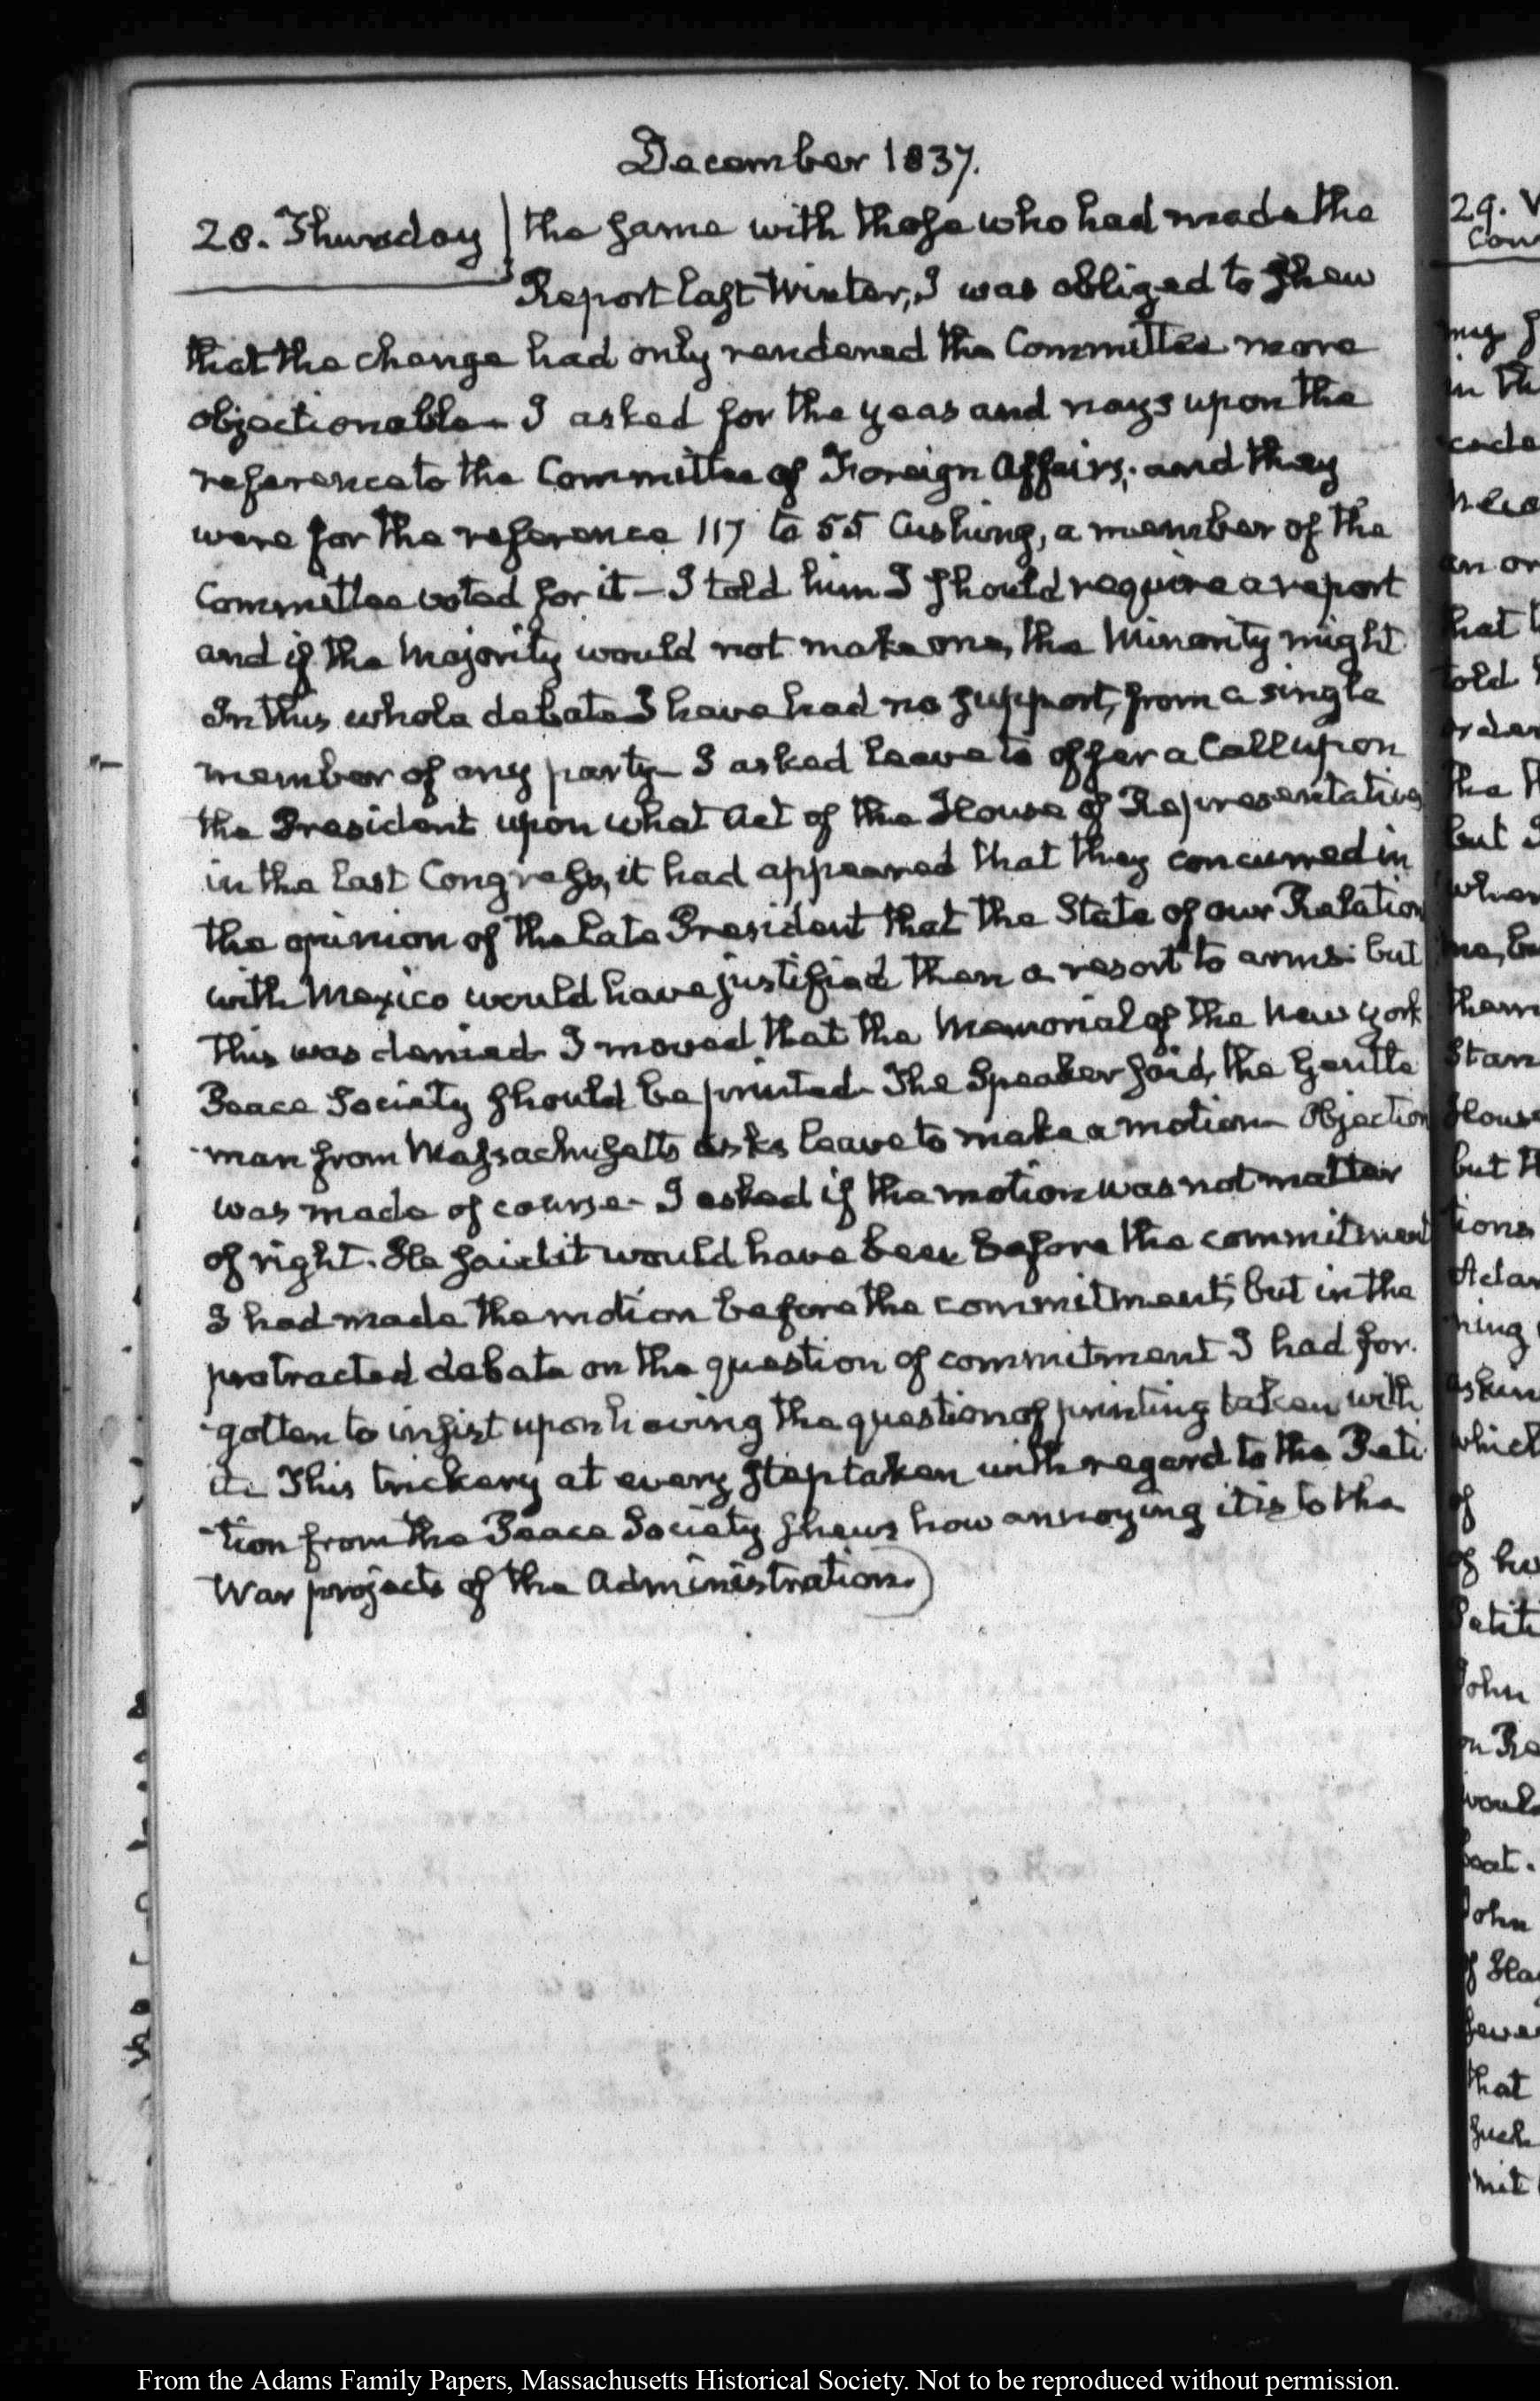 December 1837.
28. Thursday the same with those who had made the
Report last Winter, I was obliged to shew
that the change had only rendered the Committee more
objectionable — I asked for the yeas and nays upon the
reference to the Committee of Foreign Affairs; and they
were for the reference 117 to 55 Cushing, a member of the
Committee voted for it — I told him I should require a report
and if the Majority would not make one, the Minority might
In this whole debate I have had no support, from a single
member of any party — I asked leave to offer a Call upon
the President upon what Act of the House of Representatives
in the last Congress, it had appeared that they concurred in
the opinion of the late President that the State of our Relation
with Mexico would have justified then a resort to arms: but
this was denied — I moved that the Memorial of the New York
Peace Society should be printed — The Speaker said, the Gentle
-man from Massachusetts asks leave to make a motion — Objection
was made of course — I asked if the motion was not matter
of right. He said it would have been before the commitment
I had made the motion before the commitment; but in the
protracted debate on the question of commitment I had for-
-gotten to insist upon having the question of printing taken with
it — This trickery at every step taken with regard to the Peti
-tion from the Peace Society shews how annoying it is to the
War projects of the Administration.)
29.
my
in th
told
the
but
when
them
Stan
House
but th
tions
Adan
ning
askin
which
of
of his
Petiti
John
on Re
would
John
that
such
mit
From the Adams Family Papers, Massachusetts Historical Society. Not to be reproduced without permission.